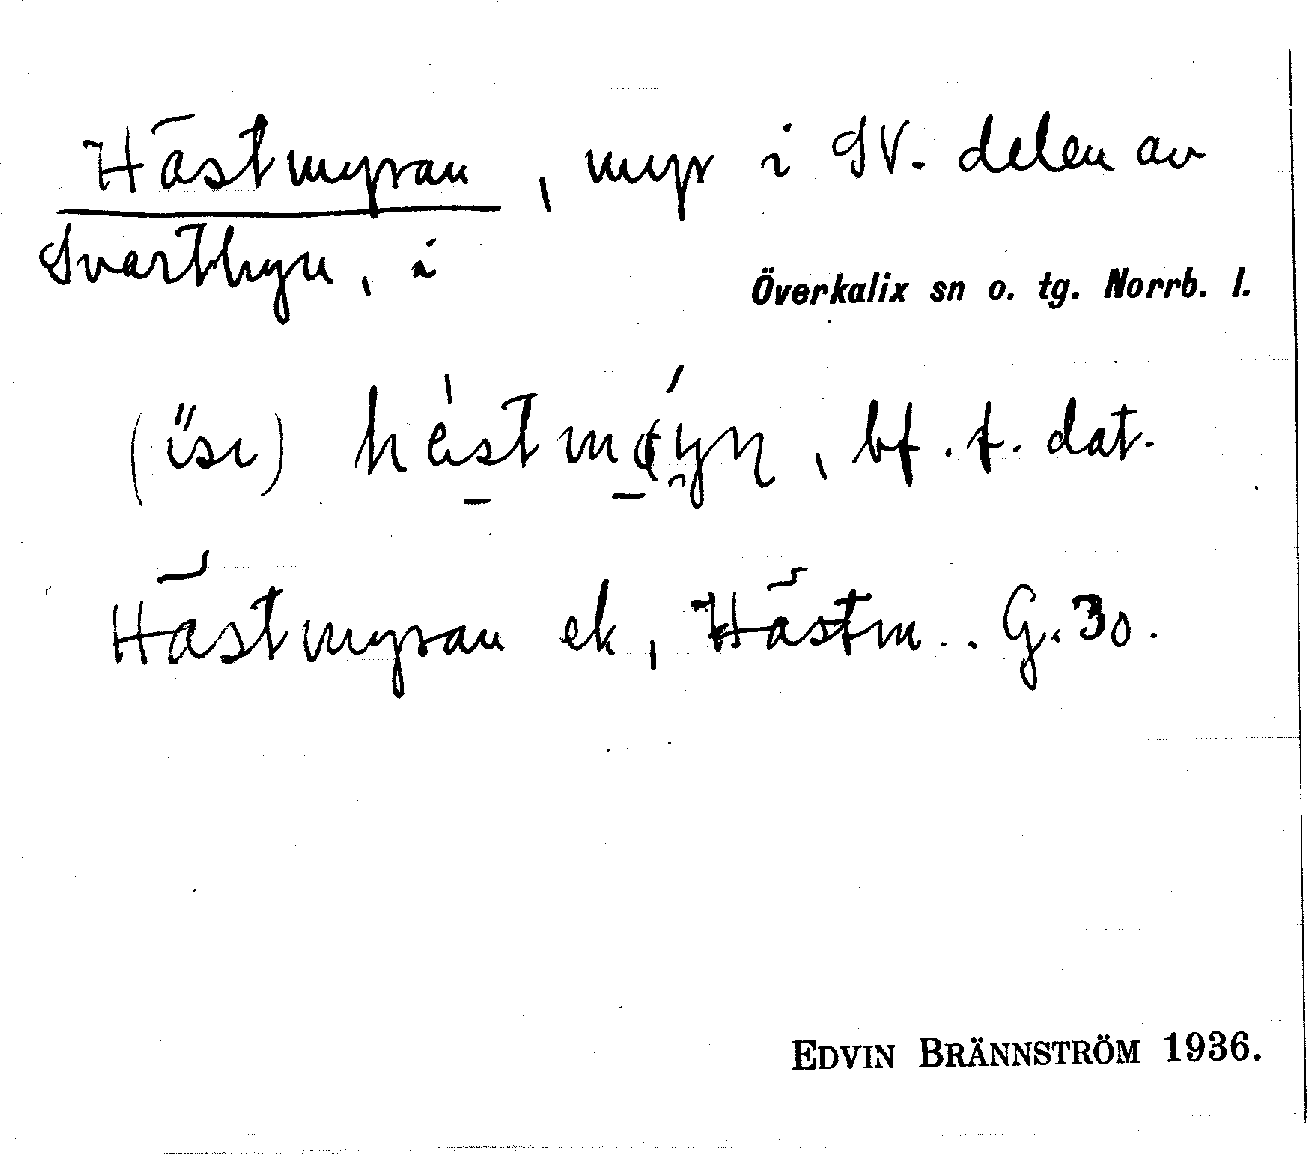 Hästmyran, myr i SV. delen av
Svartbyn, i
Överkalix sn o. tg. Norrb. l.
bf. f. dat.
Hästmyran ek, Hästm.. G. 30.
EDVIN BRÄNNSTRÖM 1936.